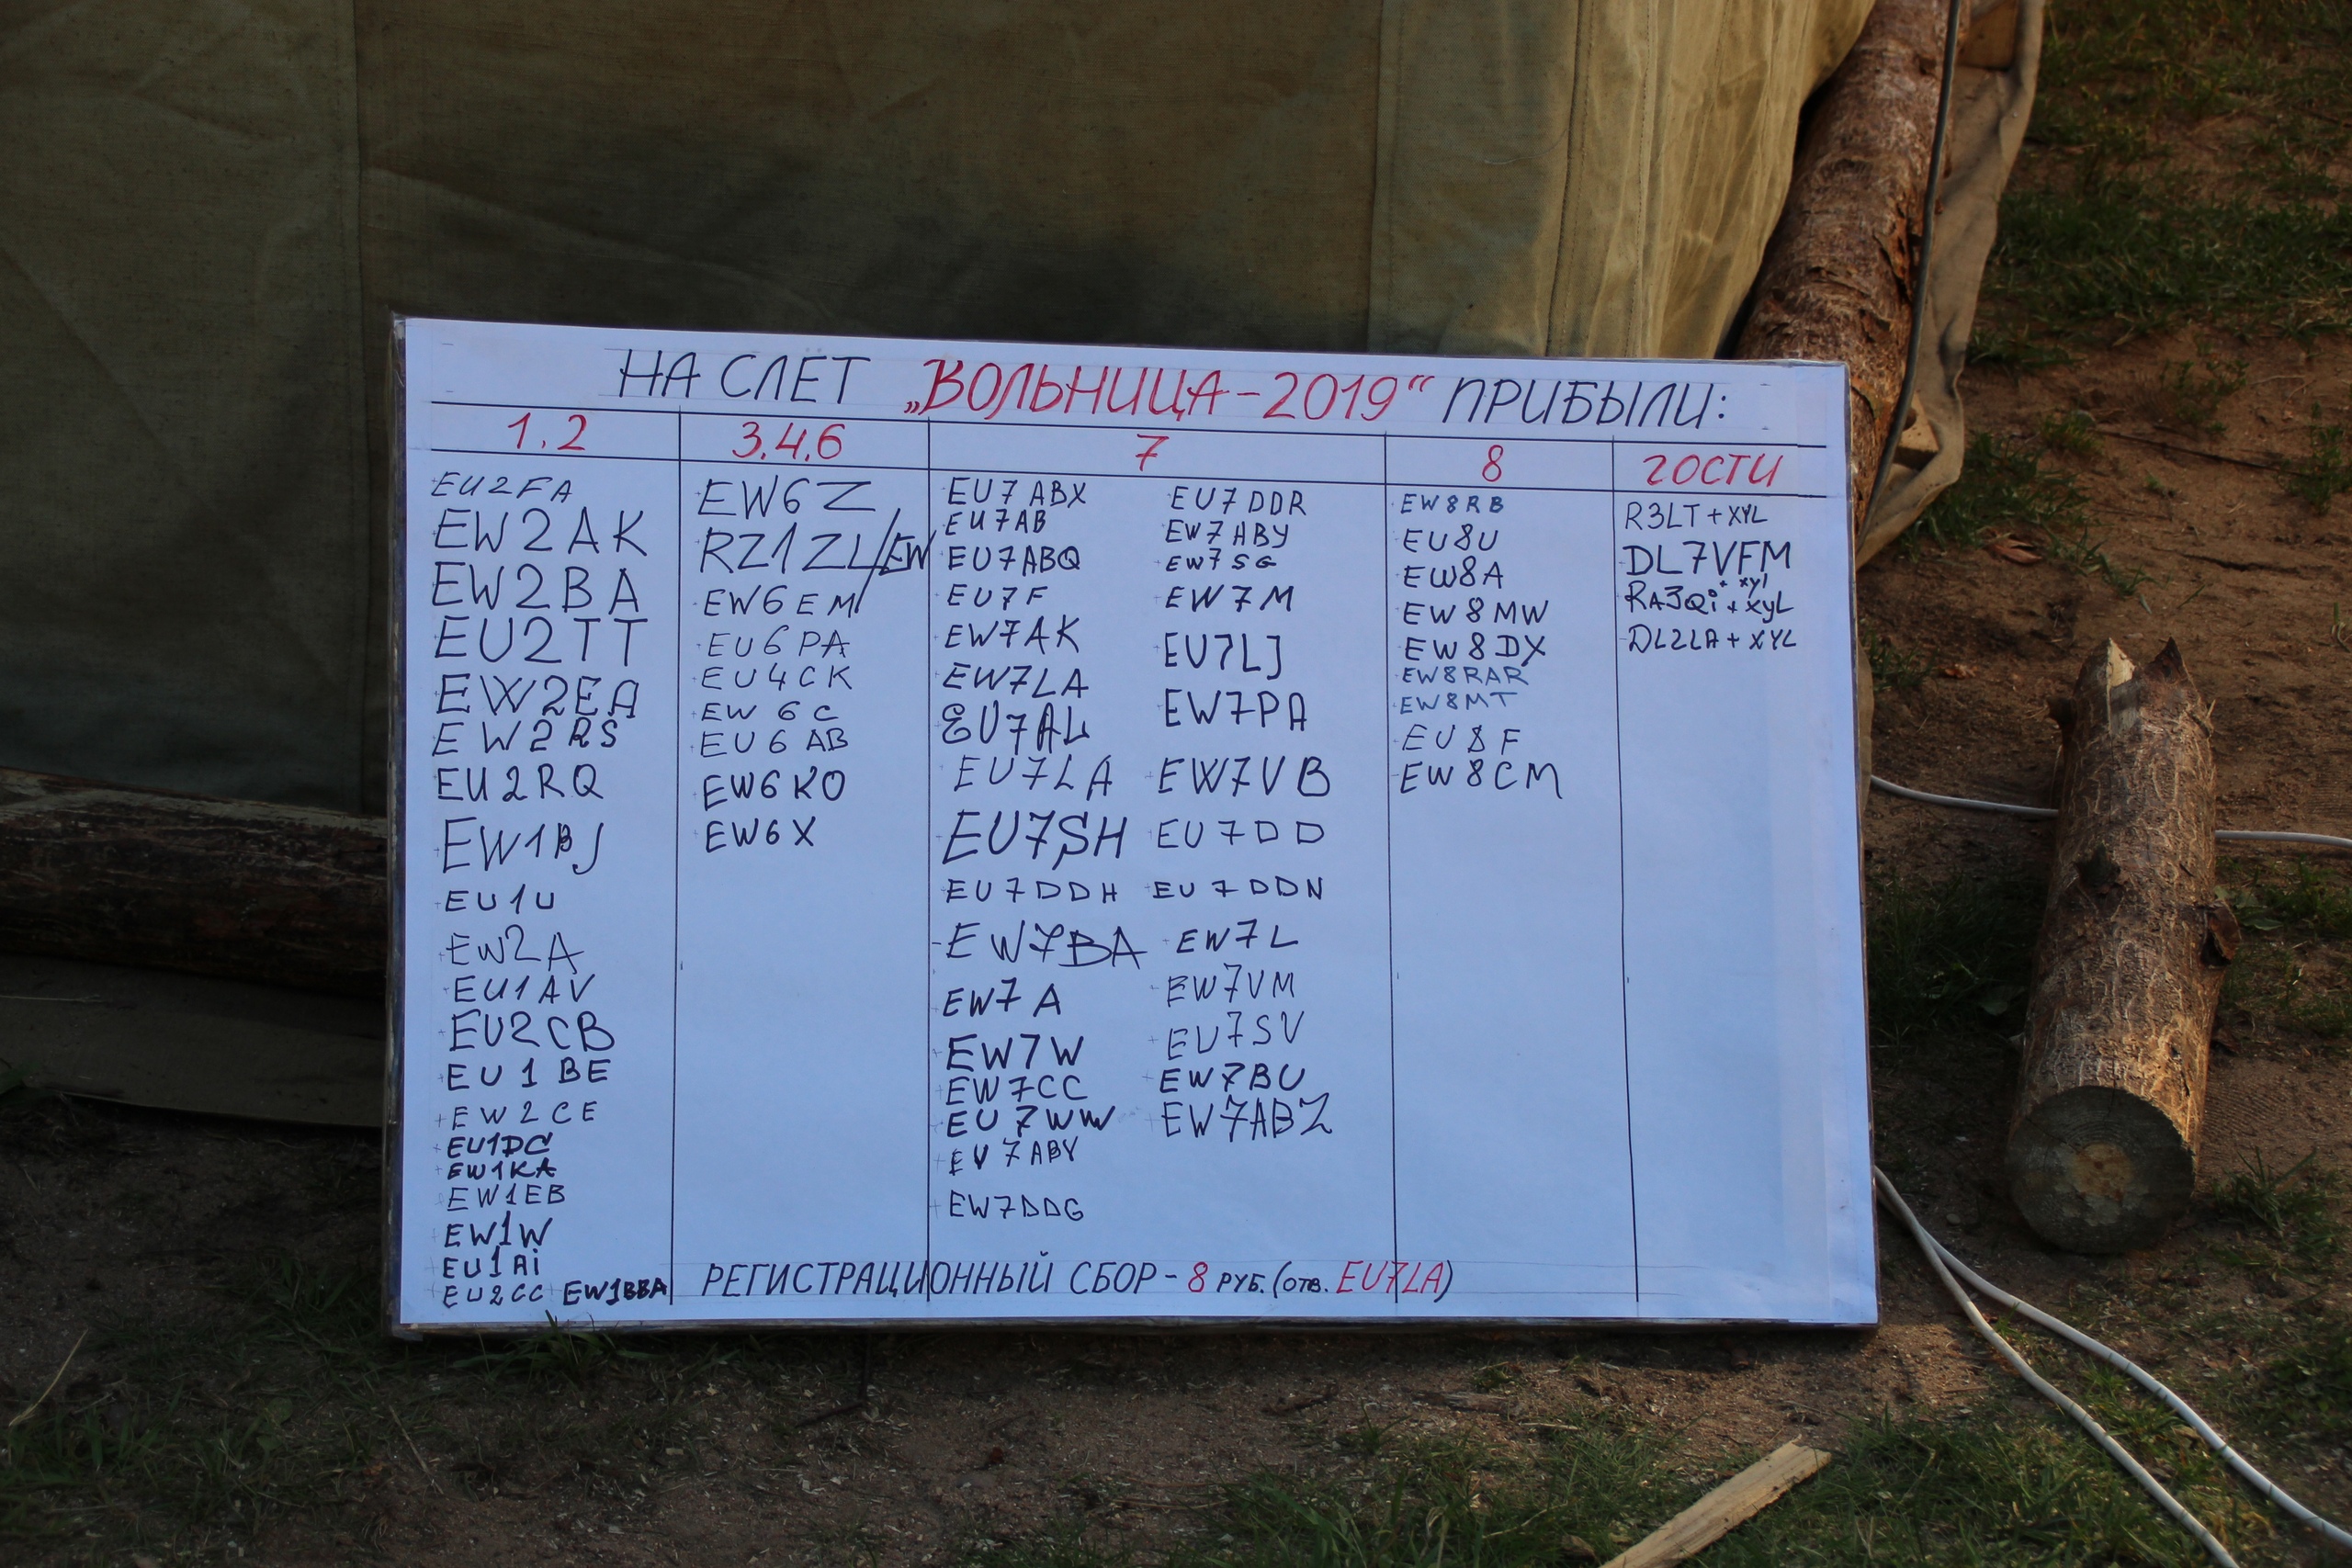 НА СЛЁТ „ВОЛЬНИЦА-2019“ ПРИБЫЛИ:
1.2
EU2FA
EW2AK
EW2BA
EU2TT
EW2EA
EW2RS
EU2RQ
EW1BJ
EU1U
EW2A
EU1AV
EU2CB
EU1BE
EW2CE
EU1DC
EW1KA
EW1EB
EW1W
EU1Ai
EU2CC EW1BBA
3.4.6
EW6Z
RZ1ZL/EW
EW6EM
EU6PA
EU4CK
EW6C
EU6AB
EW6KO
EW6X
7
EU7ABX
EU7AB
EU7ABQ
EU7F
EW7AK
EW7LA
EU7AL
EU7LA
EU7SH
EU7DDH
EW7BA
EW7A
EW7W
EW7CC
EU7WW
EV7ABY
EW7DDG
EU7DDR
EW7ABY
EW7SG
EW7M
EU7LJ
EW7PA
EW7VB
EU7DD
EU7DDN
EW7L
EW7VM
EU7SV
EW7BU
EW7ABZ
8
EW8RB
EU8U
EW8A
EW8MW
EW8DX
EW8RAR
EW8MT
EU8F
EW8CM
ГОСТИ
R3LT + XYL
DL7VFM
+ xyl
RA3Qi + XyL
DL2LA + XYL
РЕГИСТРАЦИОННЫЙ СБОР - 8 РУБ. (ОТВ. EU7LA)